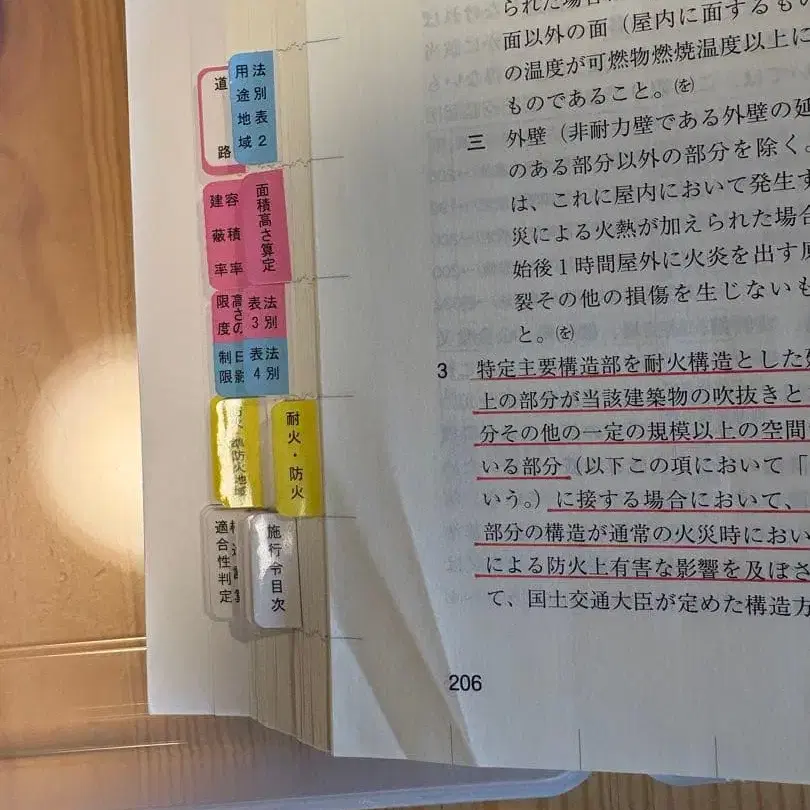 道路
用途地域
法別表2
建蔽率
容積率
面積高さ算定
高さの
限度
法別
表3
日影
制限
法別
表4
準防火地域
耐火・防火
適合性判定
施行令目次
られた場合
面以外の面（屋内に面するもの
の温度が可燃物燃焼温度以上に
ものであること。㋾
三 外壁（非耐力壁である外壁の延
のある部分以外の部分を除く。
は、これに屋内において発生す
災による火熱が加えられた場合
始後1時間屋外に火炎を出す原
裂その他の損傷を生じないも
と。㋾
3 特定主要構造部を耐火構造とした
上の部分が当該建築物の吹抜きと
分その他の一定の規模以上の空間
いる部分（以下この項において「
いう。）に接する場合において、
部分の構造が通常の火災時におい
による防火上有害な影響を及ぼさ
て、国土交通大臣が定めた構造方
206